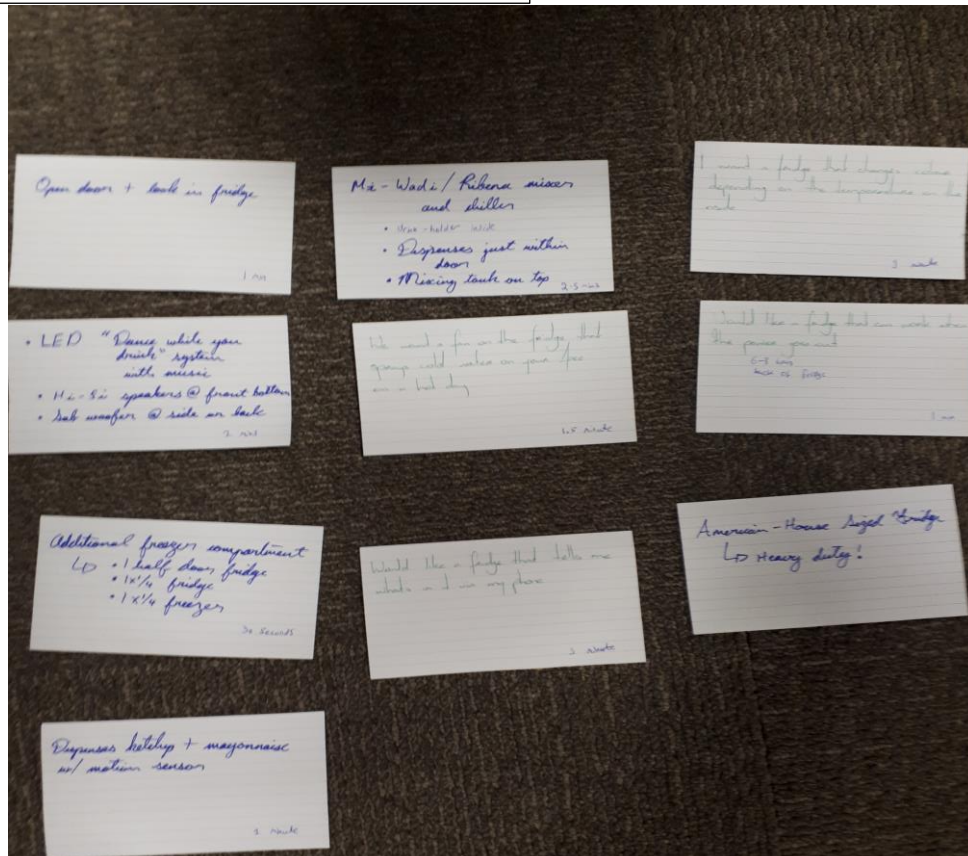 Open door + look in fridge
1 min
Mi-Wadi / Ribena mixer
and chiller
• Dispenses just within
door
• Mixing tank on top
I want a fridge that changes colour
depending on the temperature
• LED "Dance while you
drink" system
with music
• Hi-Fi speakers @ front bottom
• Sub woofer @ side or back
We want a fan on the fridge that
cold water on your face
on a hot day
1.5 minute
Would like a fridge that can work when
the power goes out
back of fridge
Additional freezer compartment
↳ • 1 half door fridge
• 1x1/4 fridge
• 1x1/4 freezer
30 seconds
Would like a fridge that tells me
what's in it on my phone
American-House Sized Fridge
↳ Heavy duty!
Dispenses ketchup + mayonnaise
w/ motion sensor